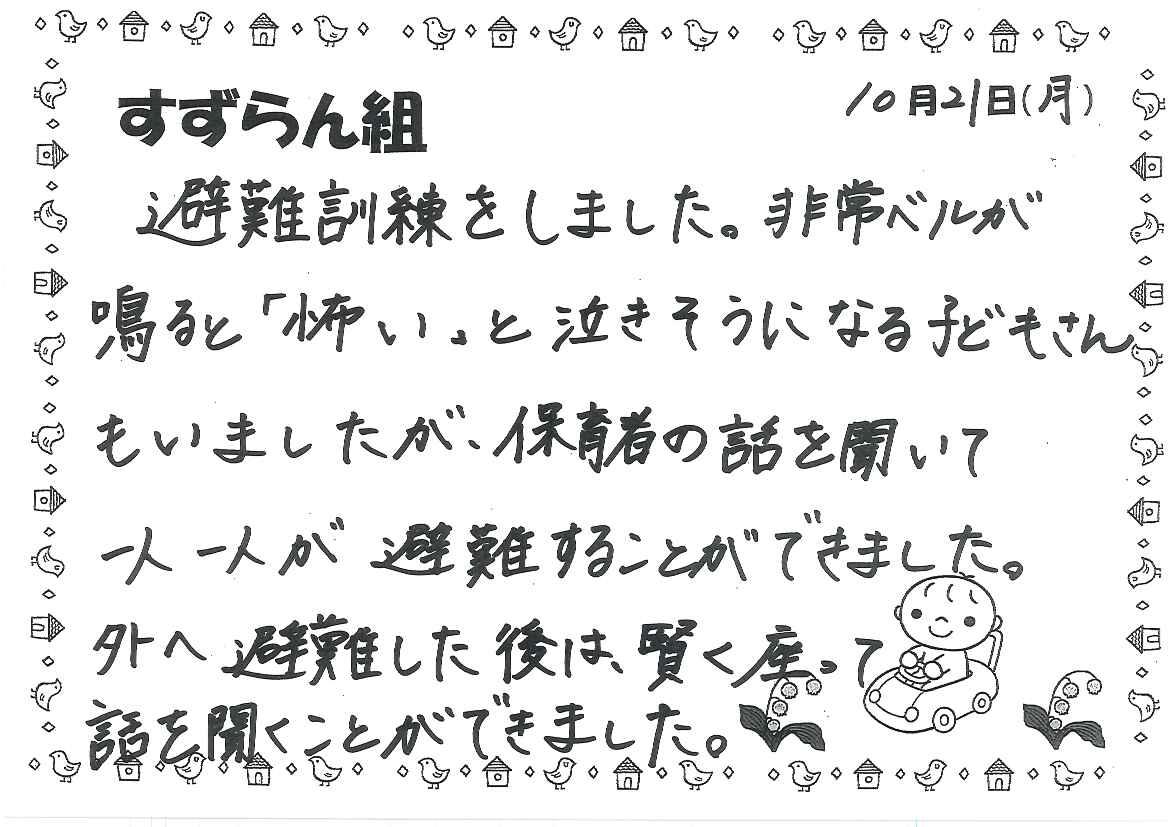 すずらん組
10月21日(月)
避難訓練をしました。非常ベルが
鳴ると「怖い」と泣きそうになる子どもさん
もいましたが、保育者の話を聞いて
一人一人が避難することができました。
外へ避難した後は、賢く座って
話を聞くことができました。